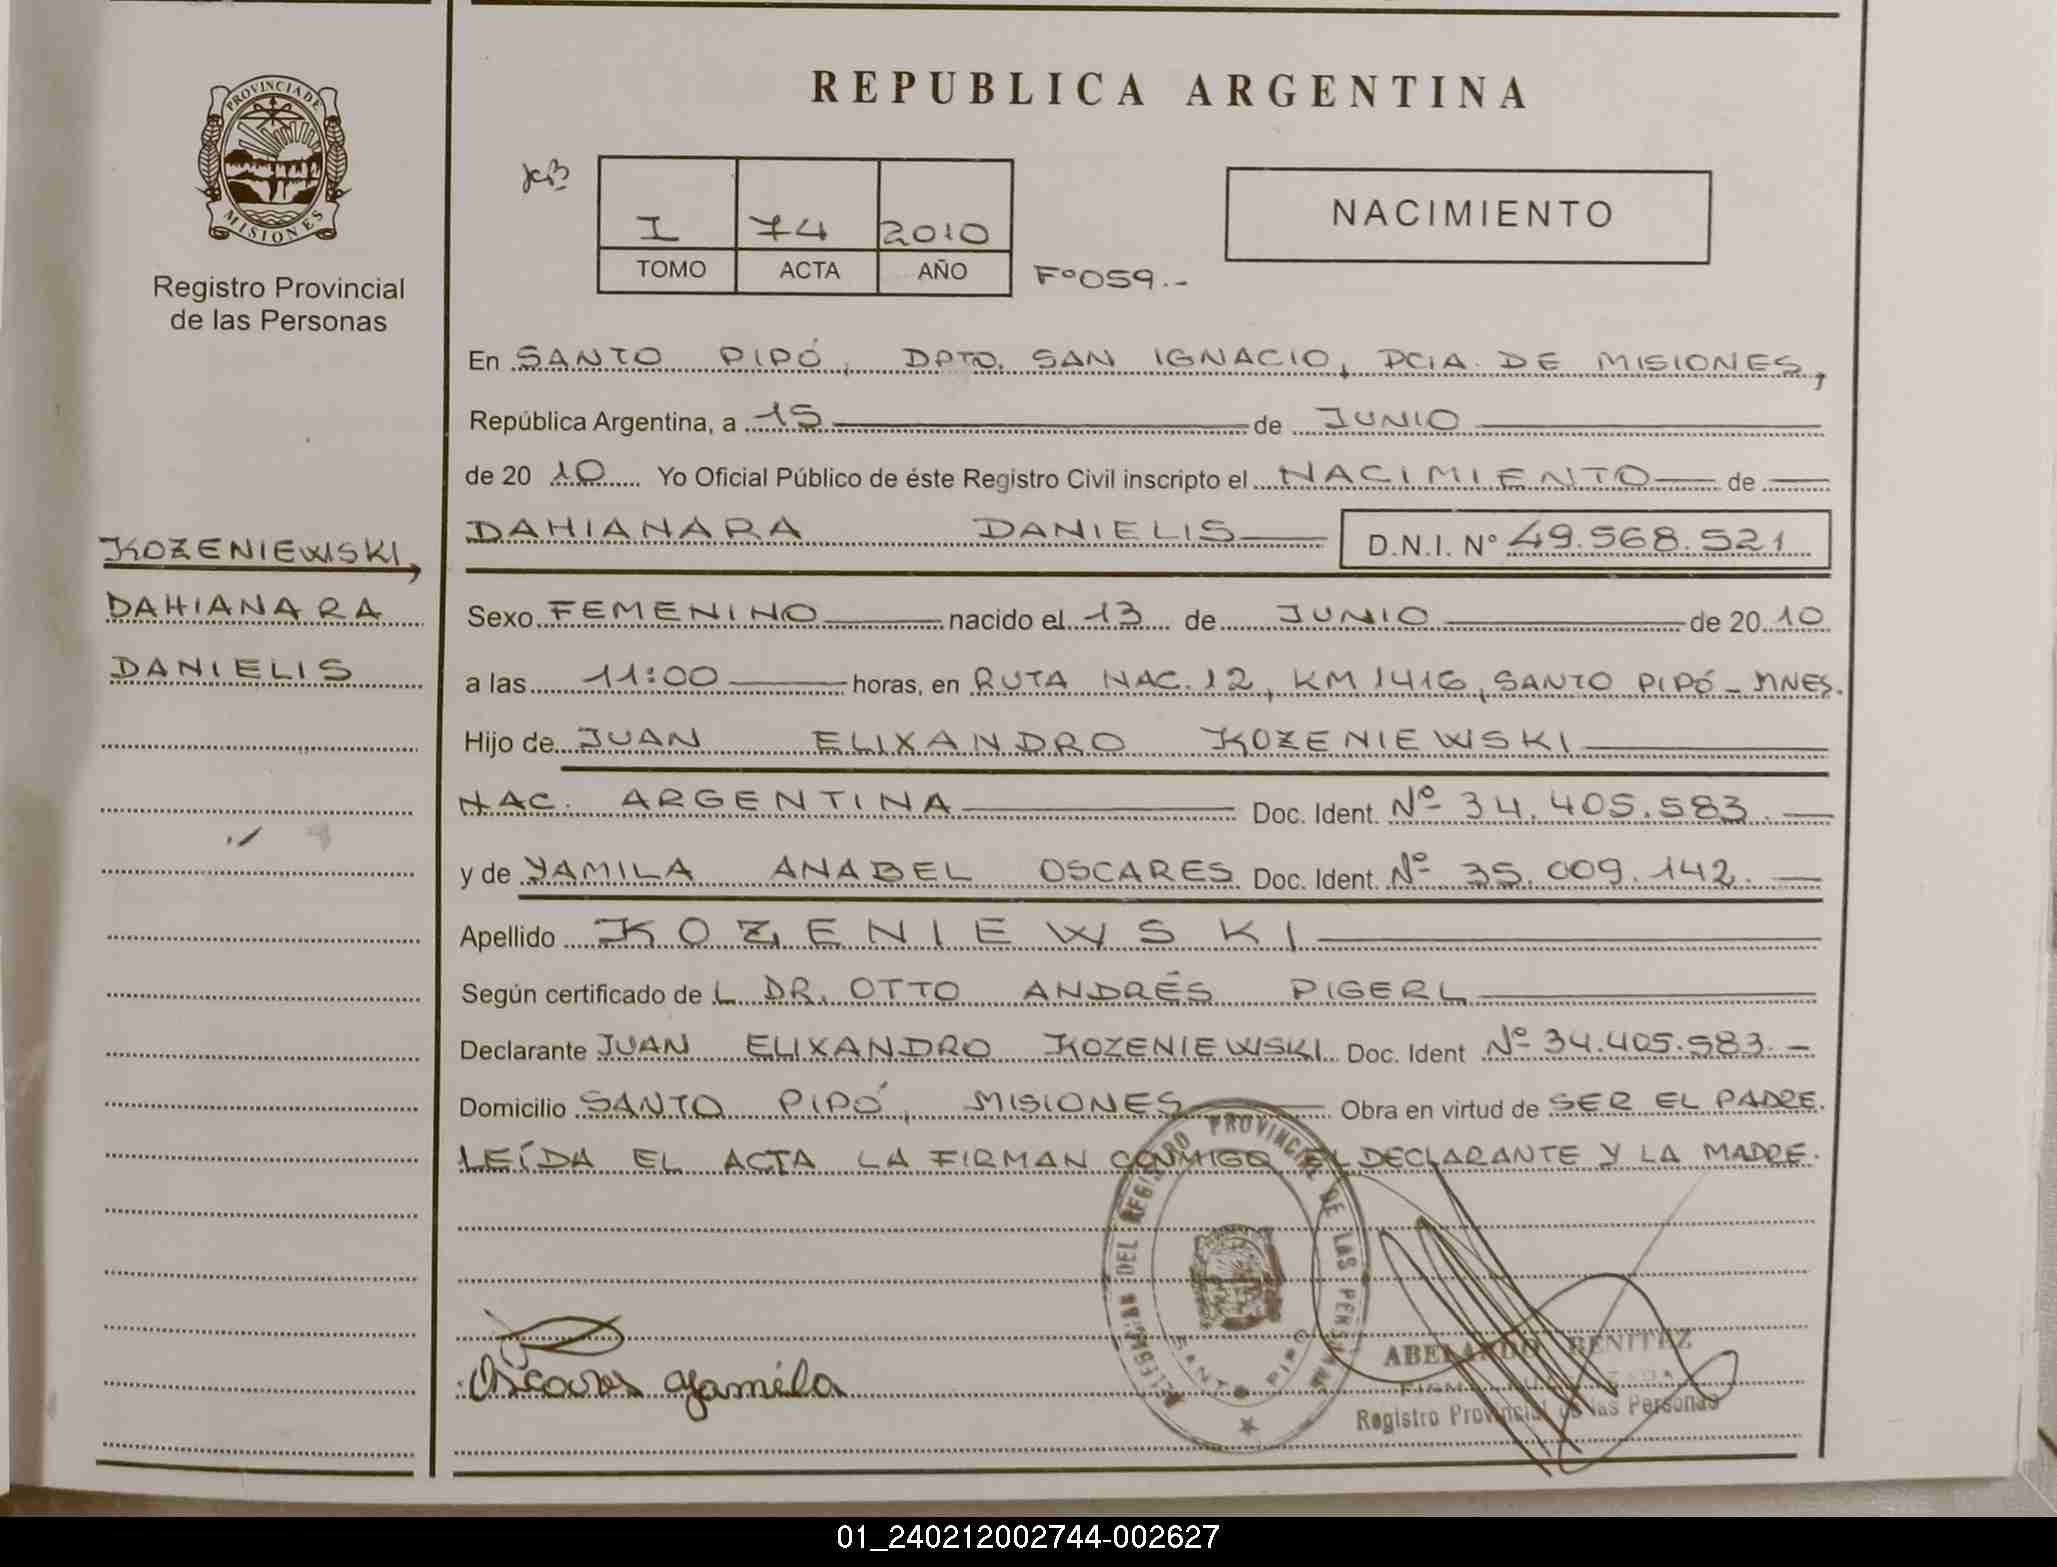 REPUBLICA ARGENTINA
PROVINCIA DE
MISIONES
Registro Provincial
de las Personas
I 74 2010
TOMO ACTA AÑO
Fº059.-
NACIMIENTO
En SANTO PIPÓ, DPTO. SAN IGNACIO, PCIA. DE MISIONES,
República Argentina, a 15 de JUNIO
de 2010 Yo Oficial Público de éste Registro Civil inscripto el NACIMIENTO de
DAHIANARA DANIELIS D.N.I. Nº 49.568.521
KOZENIEWSKI,
DAHIANARA
DANIELIS
Sexo FEMENINO nacido el 13 de JUNIO de 2010
a las 11:00 horas, en RUTA NAC. 12, KM 1416, SANTO PIPÓ - MNES.
Hijo de JUAN ELIXANDRO KOZENIEWSKI
NAC. ARGENTINA Doc. Ident. Nº 34.405.583.
y de YAMILA ANABEL OSCARES Doc. Ident. Nº 35.009.142.
Apellido KOZENIEWSKI
Según certificado de L DR. OTTO ANDRÉS PIGERL
Declarante JUAN ELIXANDRO KOZENIEWSKI Doc. Ident Nº 34.405.583.-
Domicilio SANTO PIPÓ, MISIONES Obra en virtud de SER EL PADRE.
LEÍDA EL ACTA LA FIRMAN CONMIGO EL DECLARANTE Y LA MADRE.
DEL REGISTRO PROVINCIAL DE LAS PERSONAS
SANTO PIPO
Oscares Yamila
ABELARDO BENITEZ
Registro Provincial de las Personas
01_240212002744-002627